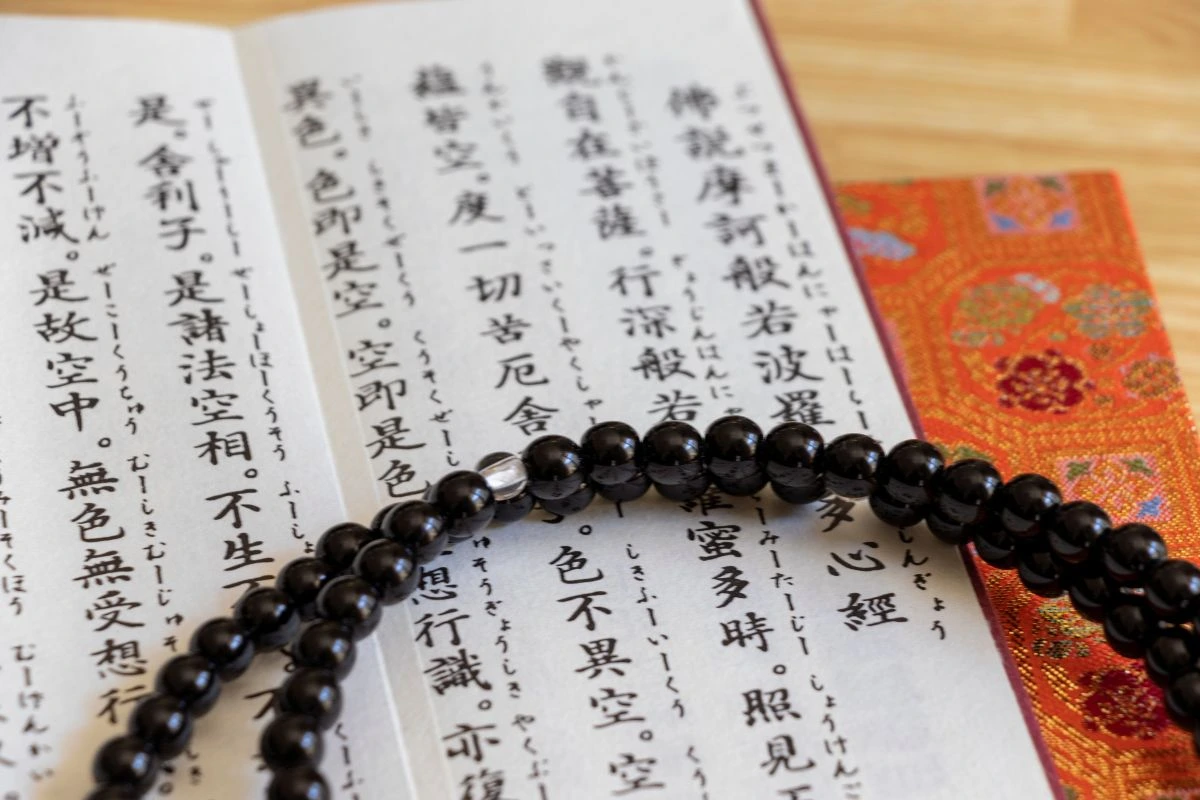 佛説摩訶般若波羅 多心經
まーかーはんにゃーはーらー しんぎょう
觀自在菩薩。行深般若 羅蜜多時。照見五
ぎょうじんはんにゃ みーたーじー しょうけん
蘊皆空。度一切苦厄舍 。色不異空。空
うんかいくう どーいっさいくーやくしゃ しきふーいーくう くう
異色。色即是空。空即是色 想行識。亦復
いーしき しきそくぜーくう くうそくぜーし ゅそうぎょうしき やくぶー
是。舍利子。是諸法空相。不生不 不
ぜー しゃーりーしー ぜーしょーほうくうそう ふーし くーふー
不増不減。是故空中。無色無受想行
ふーぞうふーげん ぜーこーくうちゅう むーしきむーじゅそ しき
みーそくほう むーげんかい